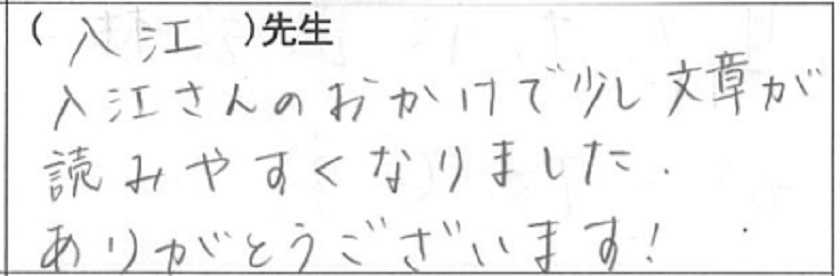 (入江)先生
入江さんのおかけで少し文章が
読みやすくなりました.
ありがとうございます!